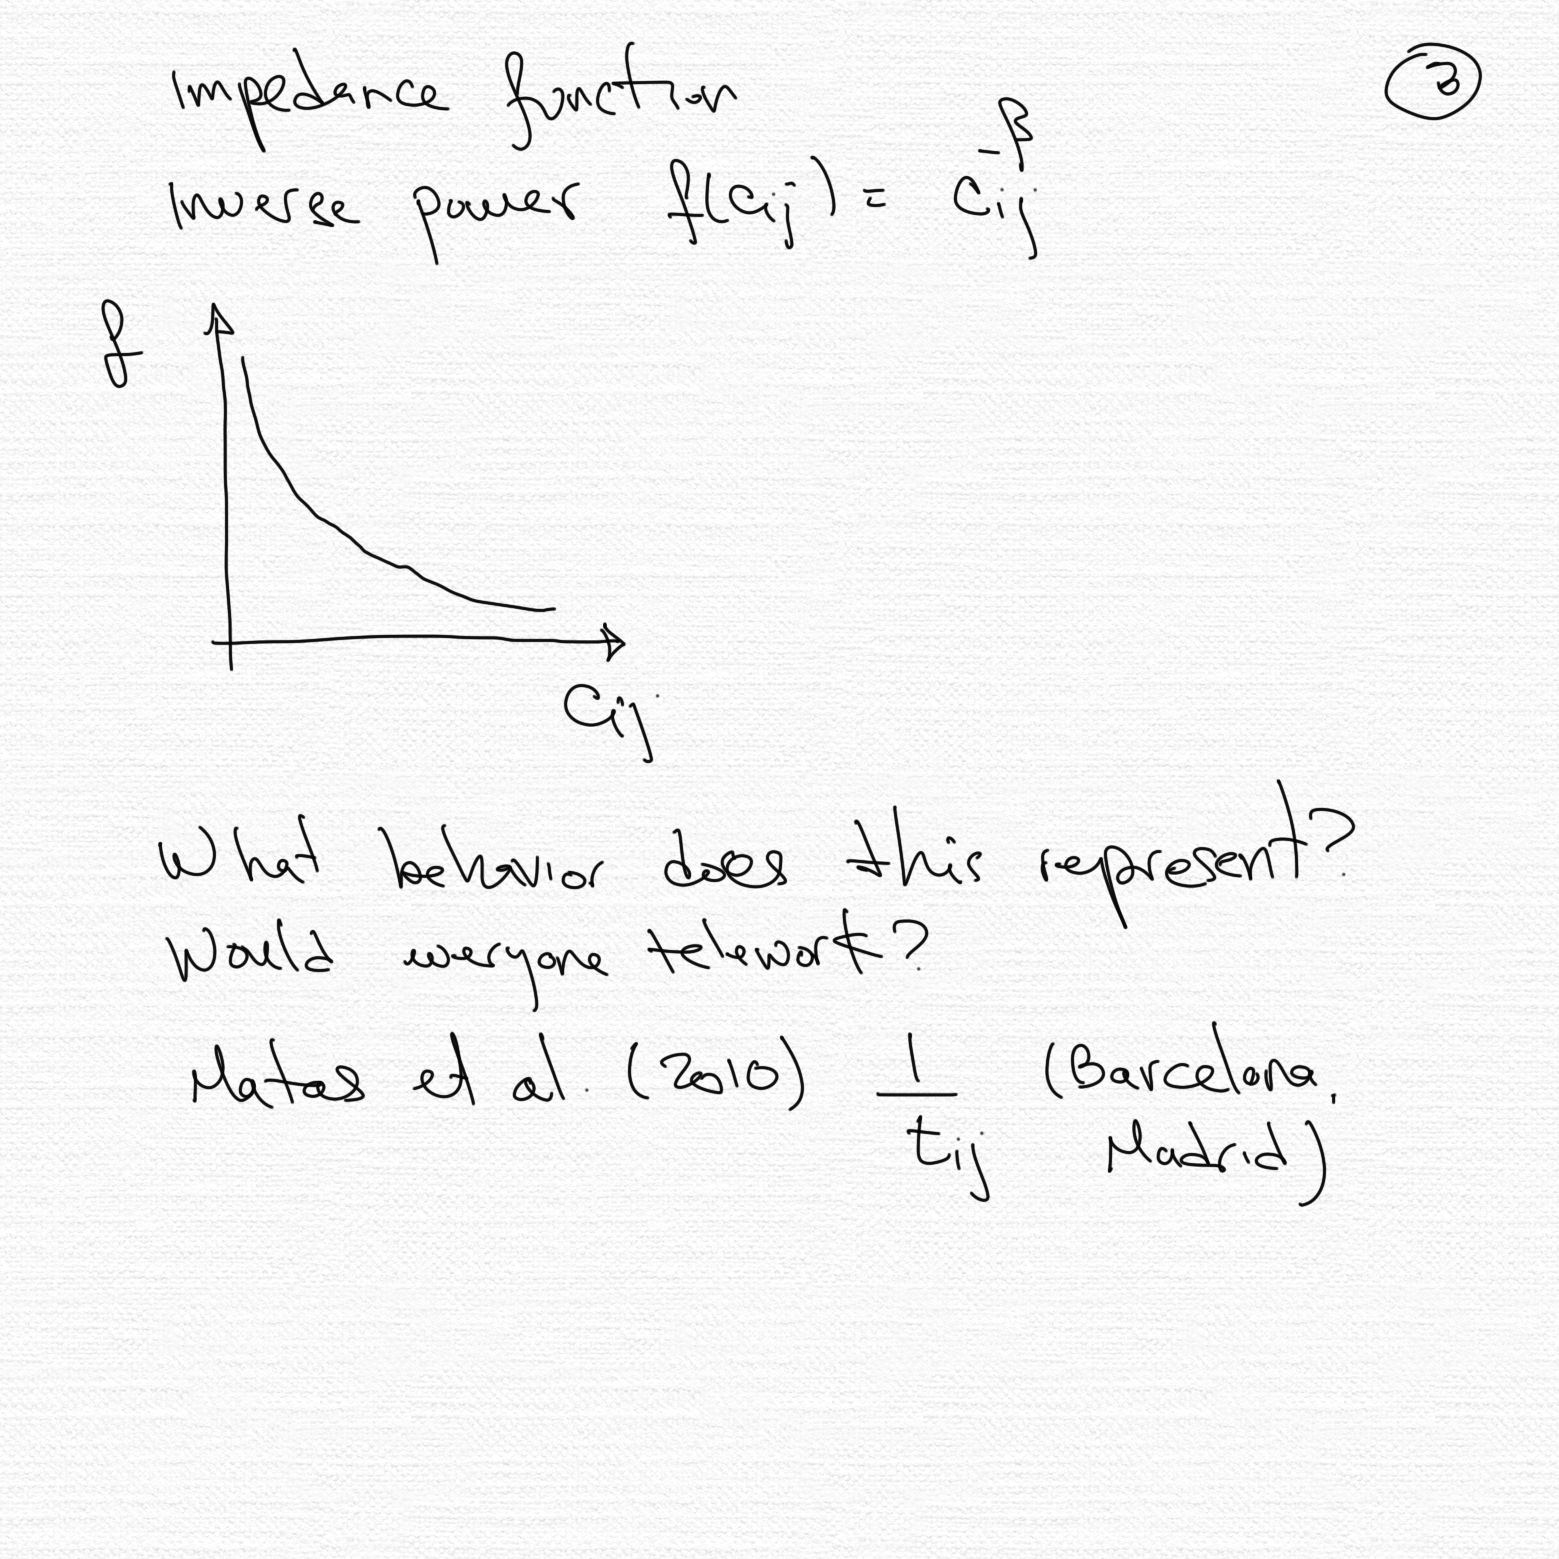 Impedance function
3
Inverse power f(cij) = cij^-β
f
Cij
What behavior does this represent?
Would everyone telework?
Matas et al. (2010) 1/tij (Barcelona,
Madrid)